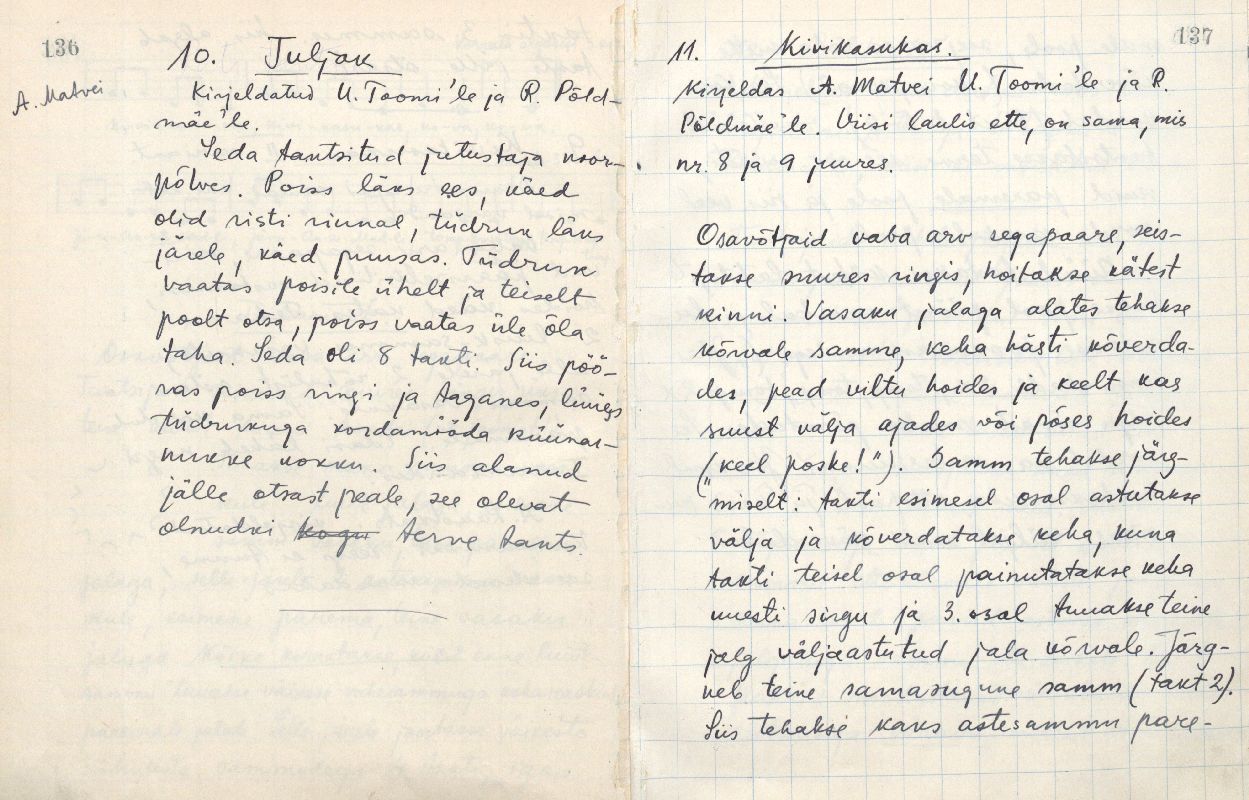 136
A. Matvei
10. Juljak
Kirjeldatud U. Toomi'le ja R. Põld-
mäe'le.
Seda tantsitud jutustaja noor-
põlves. Poiss läks ees, käed
olid risti rinnal, tüdruk läks
järele, käed puusas. Tüdruk
vaatas poisile ühelt ja teiselt
poolt otsa, poiss vaatas üle õla
taha. Seda oli 8 takti. Siis pöö-
ras poiss ringi ja taganes, lüües
tüdrukuga kordamööda küünar-
nukke kokku. Siis alanud
jälle otsast peale, see olevat
olnudki kogu terve tants.
137
11. Kivikasukas.
Kirjeldas A. Matvei U. Toomi'le ja R.
Põldmäe'le. Viisi laulis ette, on sama, mis
nr. 8 ja 9 juures.
Osavõtjaid vaba arv segapaare, seis-
takse suures ringis, hoitakse kätest
kinni. Vasaku jalaga alates tehakse
kõrvale samme, keha hästi kõverda-
des, pead viltu hoides ja keelt kas
suust välja ajades või põses hoides
("keel poske!"). Samm tehakse järg-
miselt: takti esimesel osal astutakse
välja ja kõverdatakse keha, kuna
takti teisel osal painutatakse keha
uuesti sirgu ja 3. osal tuuakse teine
jalg väljaastutud jala kõrvale. Järg-
neb teine samasugune samm (takt 2).
Siis tehakse kaks astesammu pare-